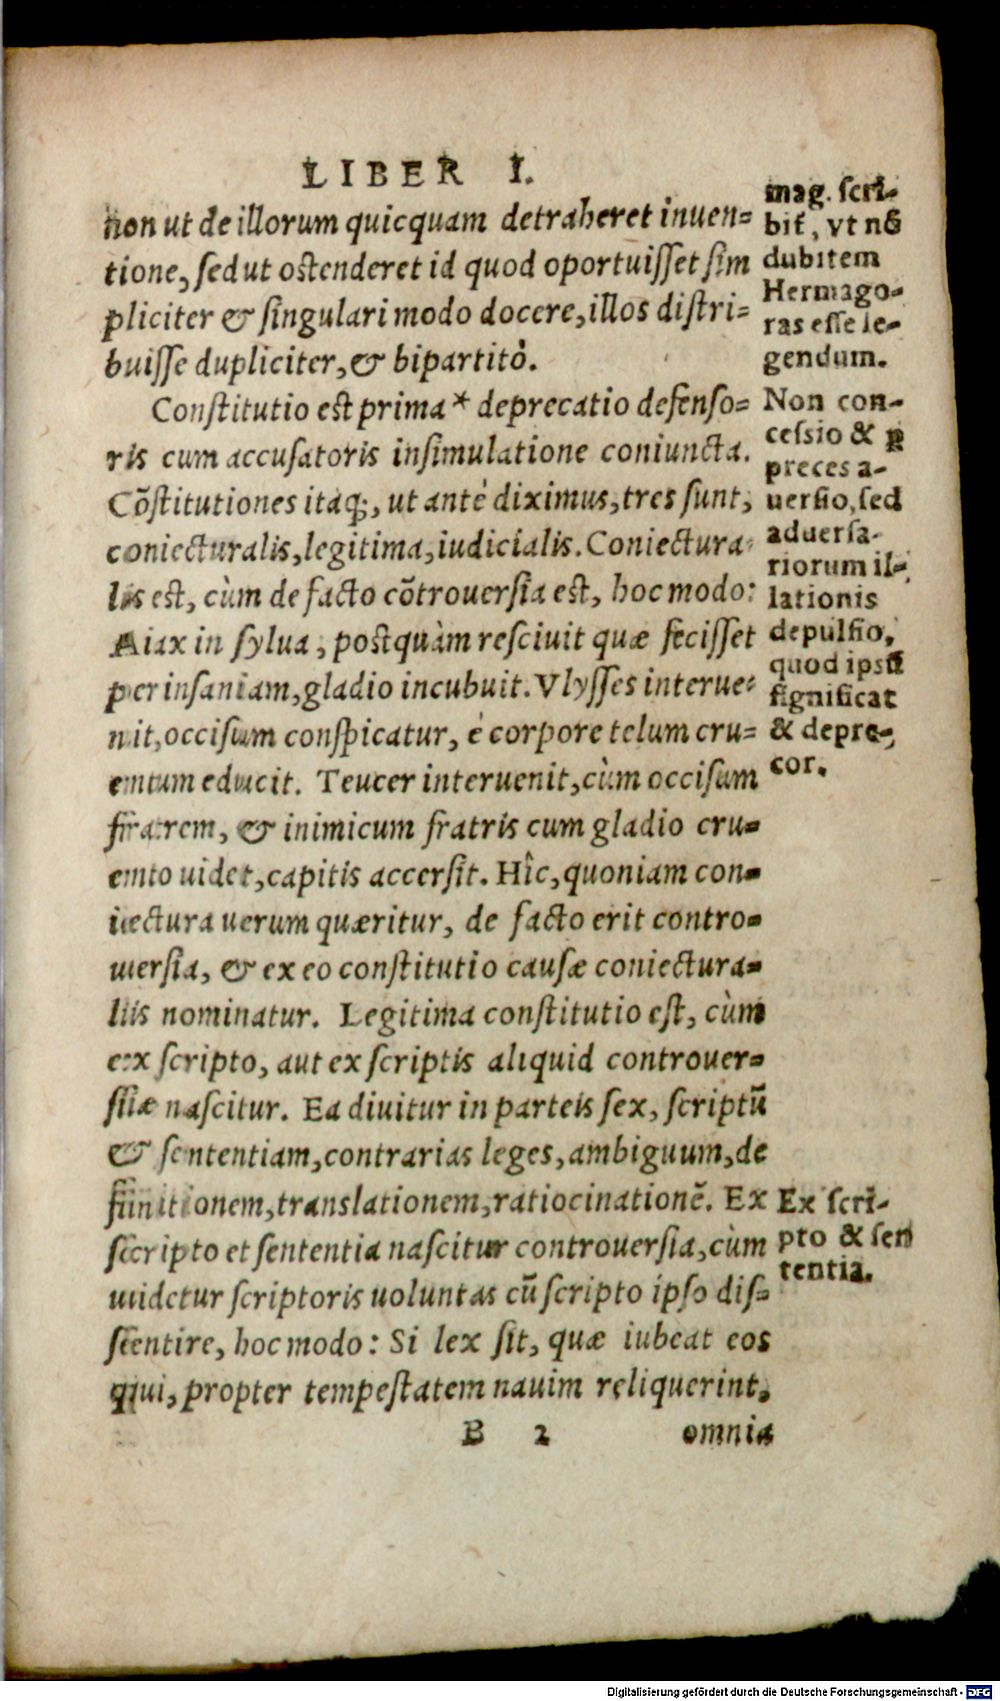 LIBER I.
non ut de illorum quicquam detraheret inuen=
tione, sed ut ostenderet id quod oportuisset sim
pliciter & singulari modo docere, illos distri=
buisse dupliciter, & bipartitò.
Constitutio est prima * deprecatio defenso=
ris cum accusatoris insimulatione coniuncta.
Cõstitutiones itaq;, ut antè diximus, tres sunt,
coniecturalis, legitima, iudicialis. Coniectura
lis est, cùm de facto cõtrouersia est, hoc modo:
Aiax in sylua, postquàm resciuit quæ fecisset
per insaniam, gladio incubuit. Vlysses interue=
nit, occisum conspicatur, è corpore telum cru=
entum educit. Teucer interuenit, cùm occisum
fratrem, & inimicum fratris cum gladio cru=
ento uidet, capitis accersit. Hîc, quoniam con=
iectura uerum quæritur, de facto erit contro=
uersia, & ex eo constitutio causæ coniectura=
lis nominatur. Legitima constitutio est, cùm
ex scripto, aut ex scriptis aliquid controuer=
siæ nascitur. Ea diuitur in parteis sex, scriptũ
& sententiam, contrarias leges, ambiguum, de
finitionem, translationem, ratiocinationẽ. Ex
scripto et sententia nascitur controuersia, cùm
uidetur scriptoris uoluntas cũ scripto ipso dis=
sentire, hoc modo: Si lex sit, quæ iubeat eos
qui, propter tempestatem nauim reliquerint,
B 2 omnia
mag. scri-
bit, vt nõ
dubitem
Hermago-
ras esse le-
gendum.
Non con-
cessio & ꝑ
preces a-
uersio, sed
aduersa-
riorum il-
lationis
depulsio,
quod ipsũ
significat
& depre-
cor.
Ex scri-
pto & sen
tentia.
Digitalisierung gefördert durch die Deutsche Forschungsgemeinschaft - DFG